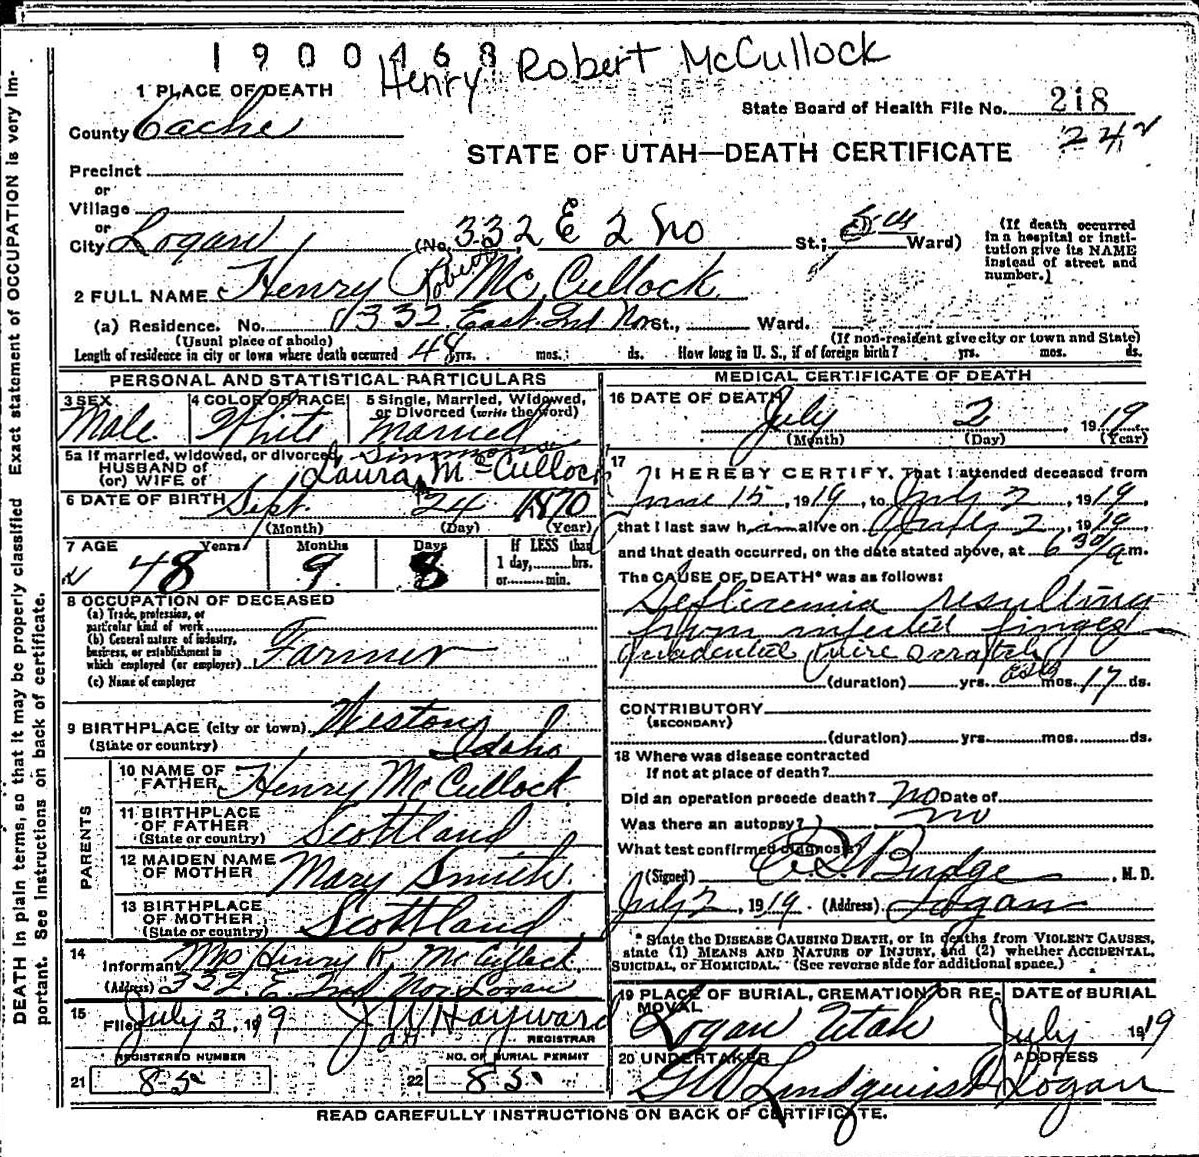 1900468
Henry Robert McCullock
1 PLACE OF DEATH
State Board of Health File No. 218
County Cache
242
STATE OF UTAH—DEATH CERTIFICATE
Precinct
or
Village
or
City Logan (No. 332 E 2 No St.; 5th Ward)
(If death occurred in a hospital or institution give its NAME instead of street and number.)
2 FULL NAME Henry Robert McCullock
(a) Residence. No. 332 East 2nd No St., Ward.
(Usual place of abode) (If non-resident give city or town and State)
Length of residence in city or town where death occurred 48 yrs. mos. ds. How long in U. S., if of foreign birth? yrs. mos. ds.
PERSONAL AND STATISTICAL PARTICULARS
3 SEX Male
4 COLOR OR RACE White
5 Single, Married, Widowed, or Divorced (write the word) Married
5a If married, widowed, or divorced
HUSBAND of
(or) WIFE of Laura Simmons McCullock
6 DATE OF BIRTH Sept. 24 1870
(Month) (Day) (Year)
7 AGE Years Months Days If LESS than
48 9 8 1 day, hrs.
or min.
8 OCCUPATION OF DECEASED
(a) Trade, profession, or
particular kind of work
(b) General nature of industry,
business, or establishment in
which employed (or employer) Farmer
(c) Name of employer
9 BIRTHPLACE (city or town) Weston
(State or country) Idaho
PARENTS
10 NAME OF FATHER Henry McCullock
11 BIRTHPLACE OF FATHER
(State or country) Scottland
12 MAIDEN NAME OF MOTHER Mary Smith
13 BIRTHPLACE OF MOTHER
(State or country) Scottland
14 Informant Mrs Henry R. McCullock
(Address) 332. E. 2nd Nor. Logan
15 Filed July 3, 1919 J W Hayward
REGISTRAR
REGISTERED NUMBER NO. OF BURIAL PERMIT
21 85 22 85
MEDICAL CERTIFICATE OF DEATH
16 DATE OF DEATH July 2 1919
(Month) (Day) (Year)
17 I HEREBY CERTIFY, That I attended deceased from
June 15, 1919, to July 2, 1919
that I last saw him alive on July 2, 1919
and that death occurred, on the date stated above, at 6 30 a m.
The CAUSE OF DEATH* was as follows:
Septicemia resulting
from infected finger
accidental wire scratch
(duration) yrs. mos. 17 ds.
CONTRIBUTORY
(SECONDARY)
(duration) yrs. mos. ds.
18 Where was disease contracted
If not at place of death?
Did an operation precede death? no Date of
Was there an autopsy? no
What test confirmed diagnosis?
(Signed) Budge, M. D.
July 2, 1919. (Address) Logan
*State the DISEASE CAUSING DEATH, or in deaths from VIOLENT CAUSES,
state (1) MEANS AND NATURE OF INJURY, and (2) whether ACCIDENTAL,
SUICIDAL, or HOMICIDAL. (See reverse side for additional space.)
19 PLACE OF BURIAL, CREMATION, OR REMOVAL DATE of BURIAL
Logan Utah July 1919
20 UNDERTAKER ADDRESS
G W Lindquist Logan
READ CAREFULLY INSTRUCTIONS ON BACK OF CERTIFICATE.
DEATH in plain terms, so that it may be properly classified Exact statement of OCCUPATION is very im-
portant. See instructions on back of certificate.